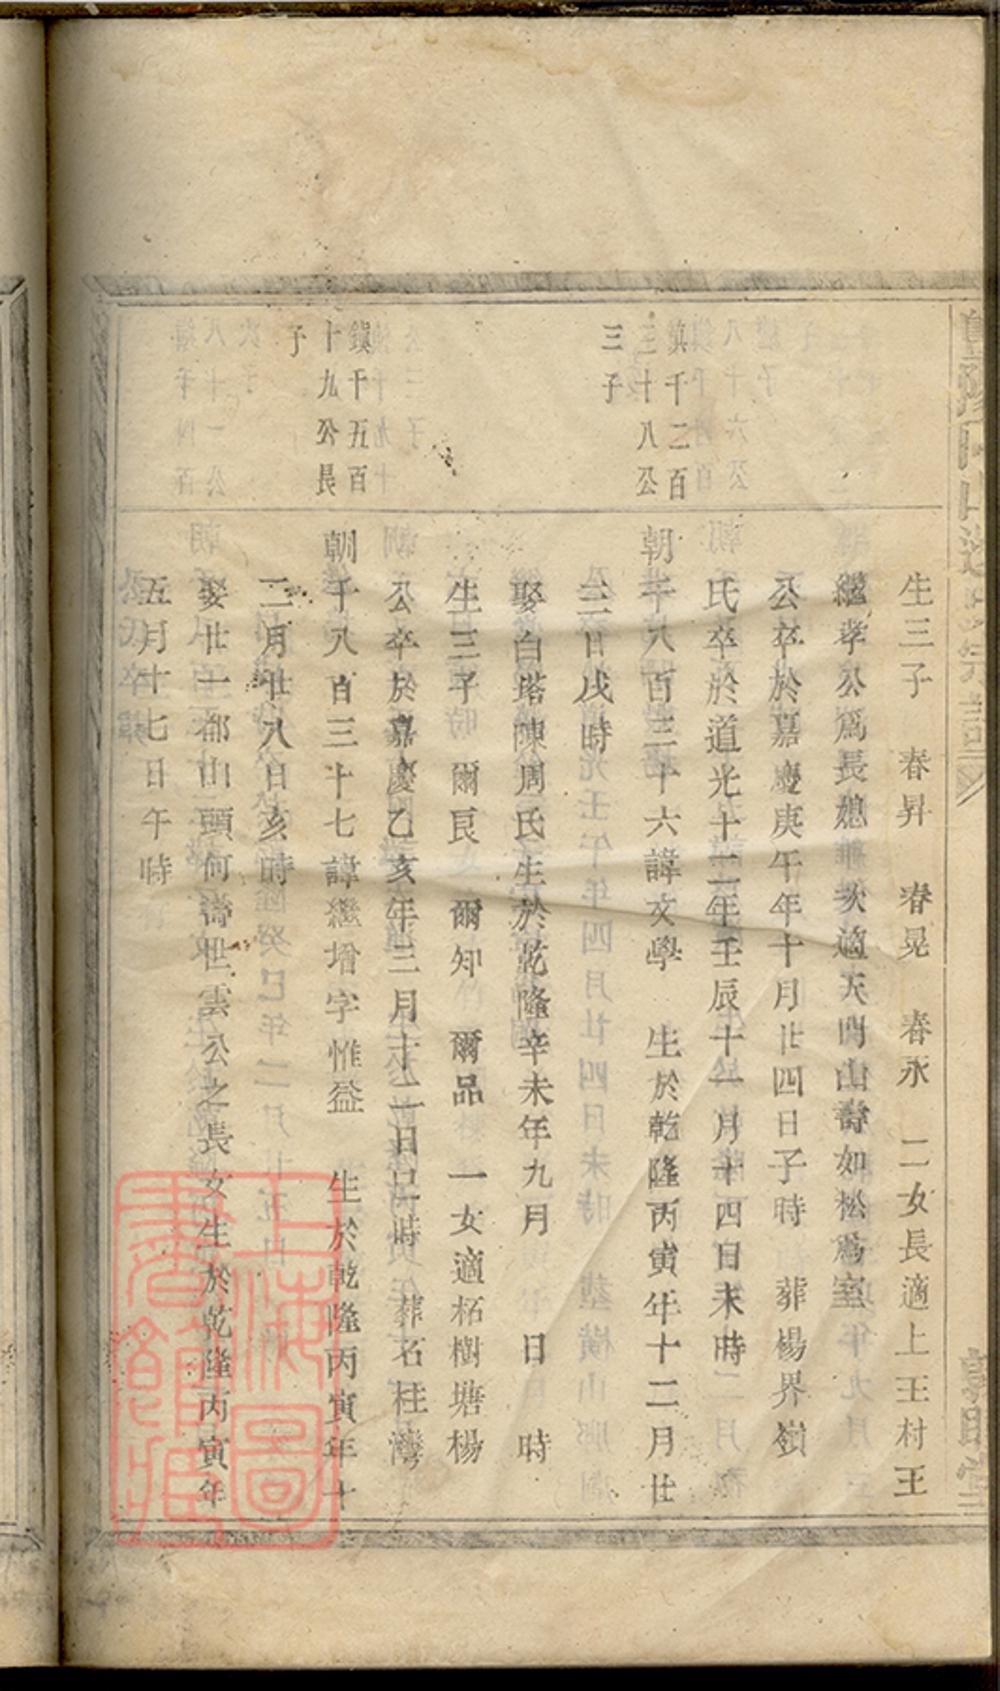 生三子 春昇 春晃 春永 二女長適上王村王
繼孝公爲長媳 次適天門山壽如松爲室
公卒於嘉慶庚午年十月廿四日子時 葬楊界嶺
氏卒於道光十二年壬辰十一月十四日未時
鎮千二百
三十八公
三子
朝千八百三十六諱文學 生於乾隆丙寅年十二月廿
三日戌時
娶白塔陳周氏生於乾隆辛未年九月 日 時
生三子 爾艮 爾知 爾品 一女適柘樹塘楊
公卒於嘉慶乙亥年三月十二日巳時 葬石柱灣
鎮千五百
十九公長
子
朝千八百三十七諱繼增字惟益 生於乾隆丙寅年十
二月廿八日亥時
娶廿一都山頭何 世雲公之長女生於乾隆丙寅年
五月十七日午時
上海圖
書館藏